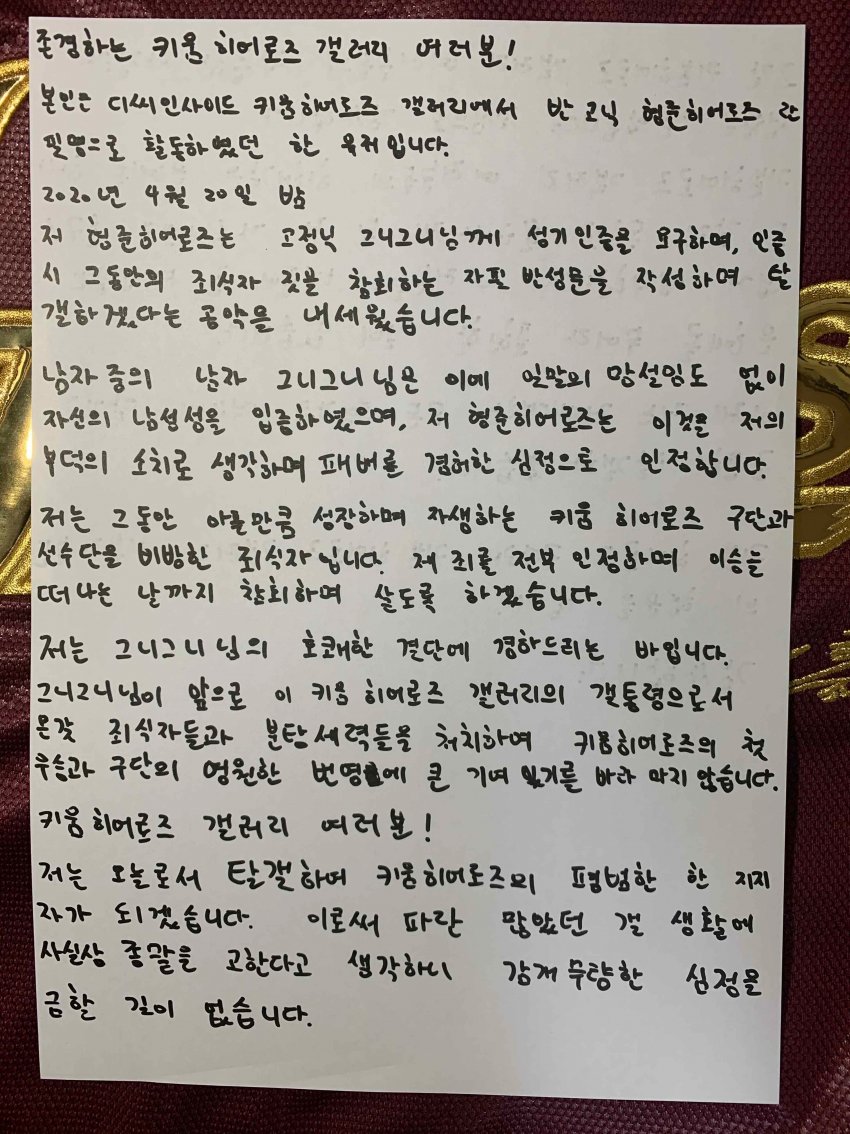 존경하는 키움히어로즈 갤러리 여러분!
본인은 디씨인사이드 키움히어로즈 갤러리에서 반고닉 형준히어로즈 란
필명으로 활동하였던 한 유저입니다.
2020년 4월 20일 밤
저 형준히어로즈는 고정닉 그니그니님께 성기인증을 요구하며, 인증
시 그동안의 죄식자 짓을 참회하는 자필 반성문을 작성하며 탈
갤하겠다는 공약을 내세웠습니다.
남자 중의 남자 그니그니님은 이에 일말의 망설임도 없이
자신의 남성성을 입증하였으며, 저 형준히어로즈는 이것을 저의
부덕의 소치로 생각하며 패배를 겸허한 심정으로 인정합니다.
저는 그동안 아글만큼 성장하며 자생하는 키움 히어로즈 구단과
선수단을 비방한 죄식자입니다. 제 죄를 전부 인정하며 이승을
떠나는 날까지 참회하며 살도록 하겠습니다.
저는 그니그니님의 호쾌한 결단에 경하드리는 바입니다.
그니그니님이 앞으로 이 키움 히어로즈 갤러리의 갤통령으로서
온갖 죄식자들과 분탕세력들을 처치하여 키움히어로즈의 첫
우승과 구단의 영원한 번영에 큰 기여 있기를 바라 마지 않습니다.
키움히어로즈 갤러리 여러분!
저는 오늘로서 탈갤하여 키움히어로즈의 평범한 한 지지
자가 되겠습니다. 이로써 파란 많았던 갤 생활에
사실상 종말을 고한다고 생각하니 감개무량한 심정을
금할 길이 없습니다.
S